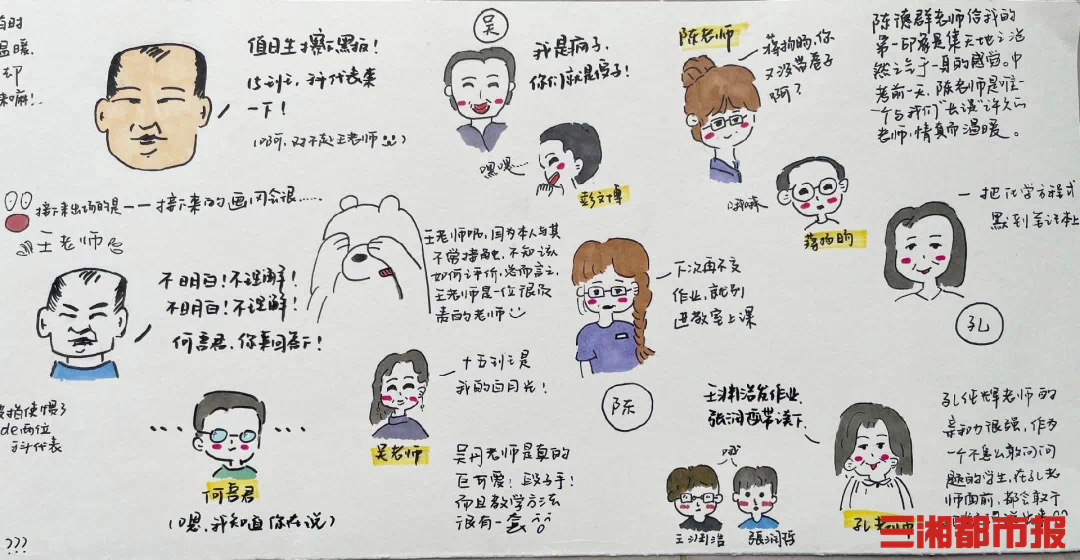 值日生擦黑板!
15到过,科代表来
一下!
(呵呵,对不起王老师)
吴
我是疯子,
你们就是傻子!
嘿嘿……
彭文博
陈老师
蒋昫昀,你
又没带卷子
啊?
陈德群老师给我的
第一印象是集天地之浩
然之气于一身的感觉。中
考前一天,陈老师是唯一
一个与我们"长谈"许久的
老师,情真而温暖。
接下来出场的是——接下来的画风会很……
王老师
不明白!不理解!
不明白!不理解!
何吾君,你来回答下!
王老师呢,因为本人与其
不常接触,不知该
如何评价,总而言之,
王老师是一位很负
责的老师
下次再不交
作业,就别
进教室上课
陈
一把化学方程式
默到笔记本上
孔
de两位
科代表
……
何吾君
(嗯,我知道你在说)
???
十五到过是
我的白月光!
吴老师
吴丹老师是真的
巨可爱!段子手!
而且教学方法
很有一套
王渊浩发作业,
张润哲带读下.
哦
王渊浩
張润哲
孔老师
孔纯辉老师的
亲和力很强,作为
一个不怎么敢问问
题的学生,在孔老
师面前,都会敢于
三湘都市报